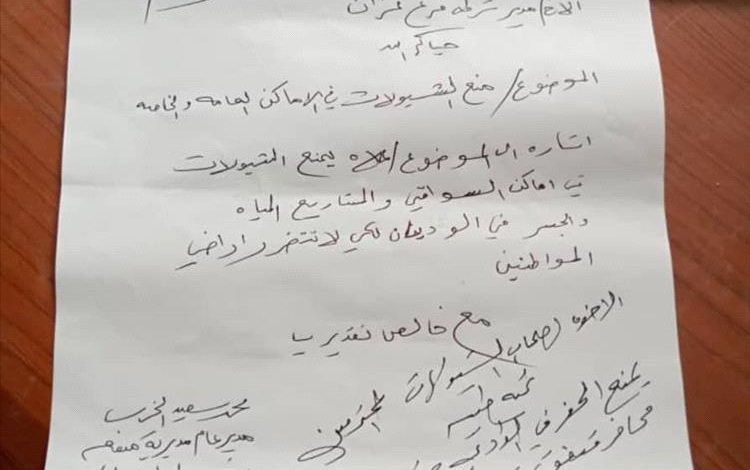 الاخ/مدير شركة فرع عمران
حياكم الله
الموضوع/ منع الشيولات في الاماكن العامه والخاصه
اشاره الى الموضوع اعلاه يمنع الشيولات
في اماكن السواقي والمشاريع المياه
والجسر في الوديان لكي لا تتضرر اراضي
المواطنين
مع خالص تقديري
الاخوه اصحاب الشيولات المحترمين
تحيه طيبه
يمنع الحفر في الوادي
محمد سعيد الخرب
مدير عام مديرية ميفعه